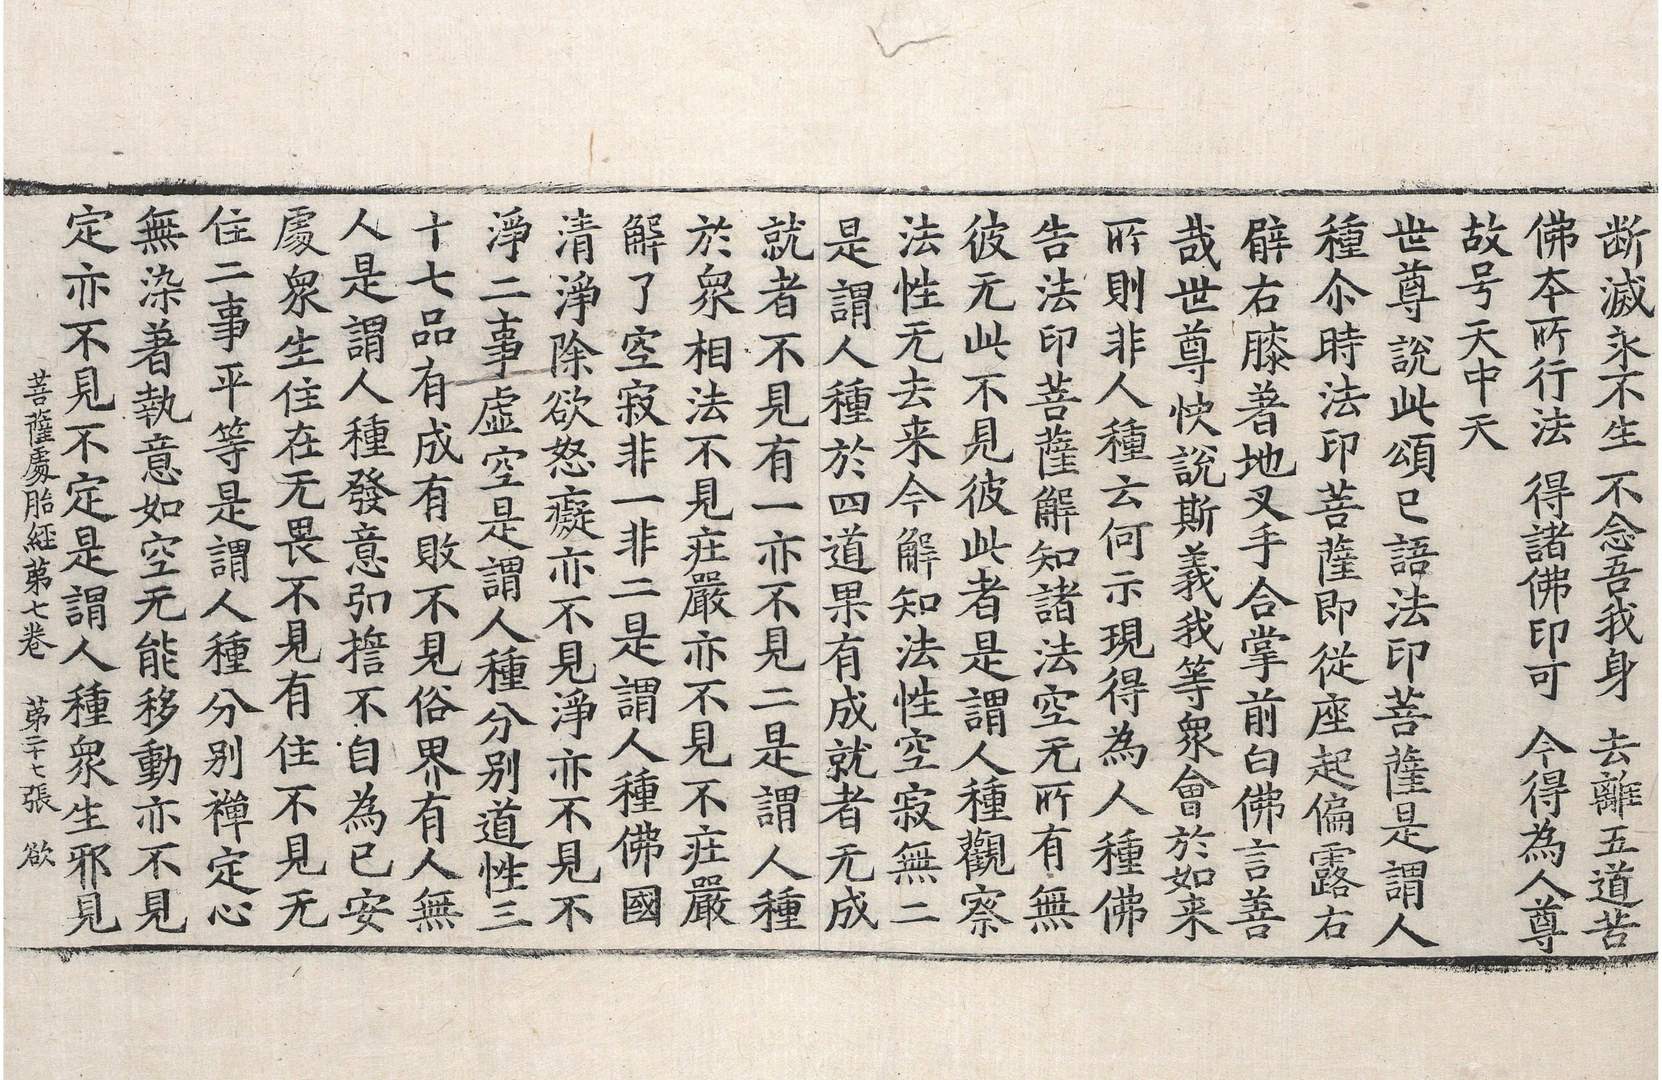 断滅永不生 不念吾我身 去離五道苦
佛夲所行法 得諸佛印可 今得為人尊
故号天中天
世尊說此頌已語法印菩薩是謂人
種尒時法印菩薩即從座起偏露右
臂右膝著地叉手合掌前白佛言善
哉世尊快說斯義我等衆會於如来
所則非人種云何示現得為人種佛
告法印菩薩解知諸法空无所有無
彼无此不見彼此者是謂人種觀察
法性无去来今解知法性空寂無二
是謂人種於四道果有成就者无成
就者不見有一亦不見二是謂人種
於衆相法不見莊嚴亦不見不莊嚴
解了空寂非一非二是謂人種佛國
清淨除欲怒癡亦不見淨亦不見不
淨二事虛空是謂人種分別道性三
十七品有成有敗不見俗界有人無
人是謂人種發意弘擔不自為已安
處衆生住在无畏不見有住不見无
住二事平等是謂人種分別禅定心
無染著執意如空无能移動亦不見
定亦不見不定是謂人種衆生邪見
菩薩處胎經第七卷 第二十七張 欲